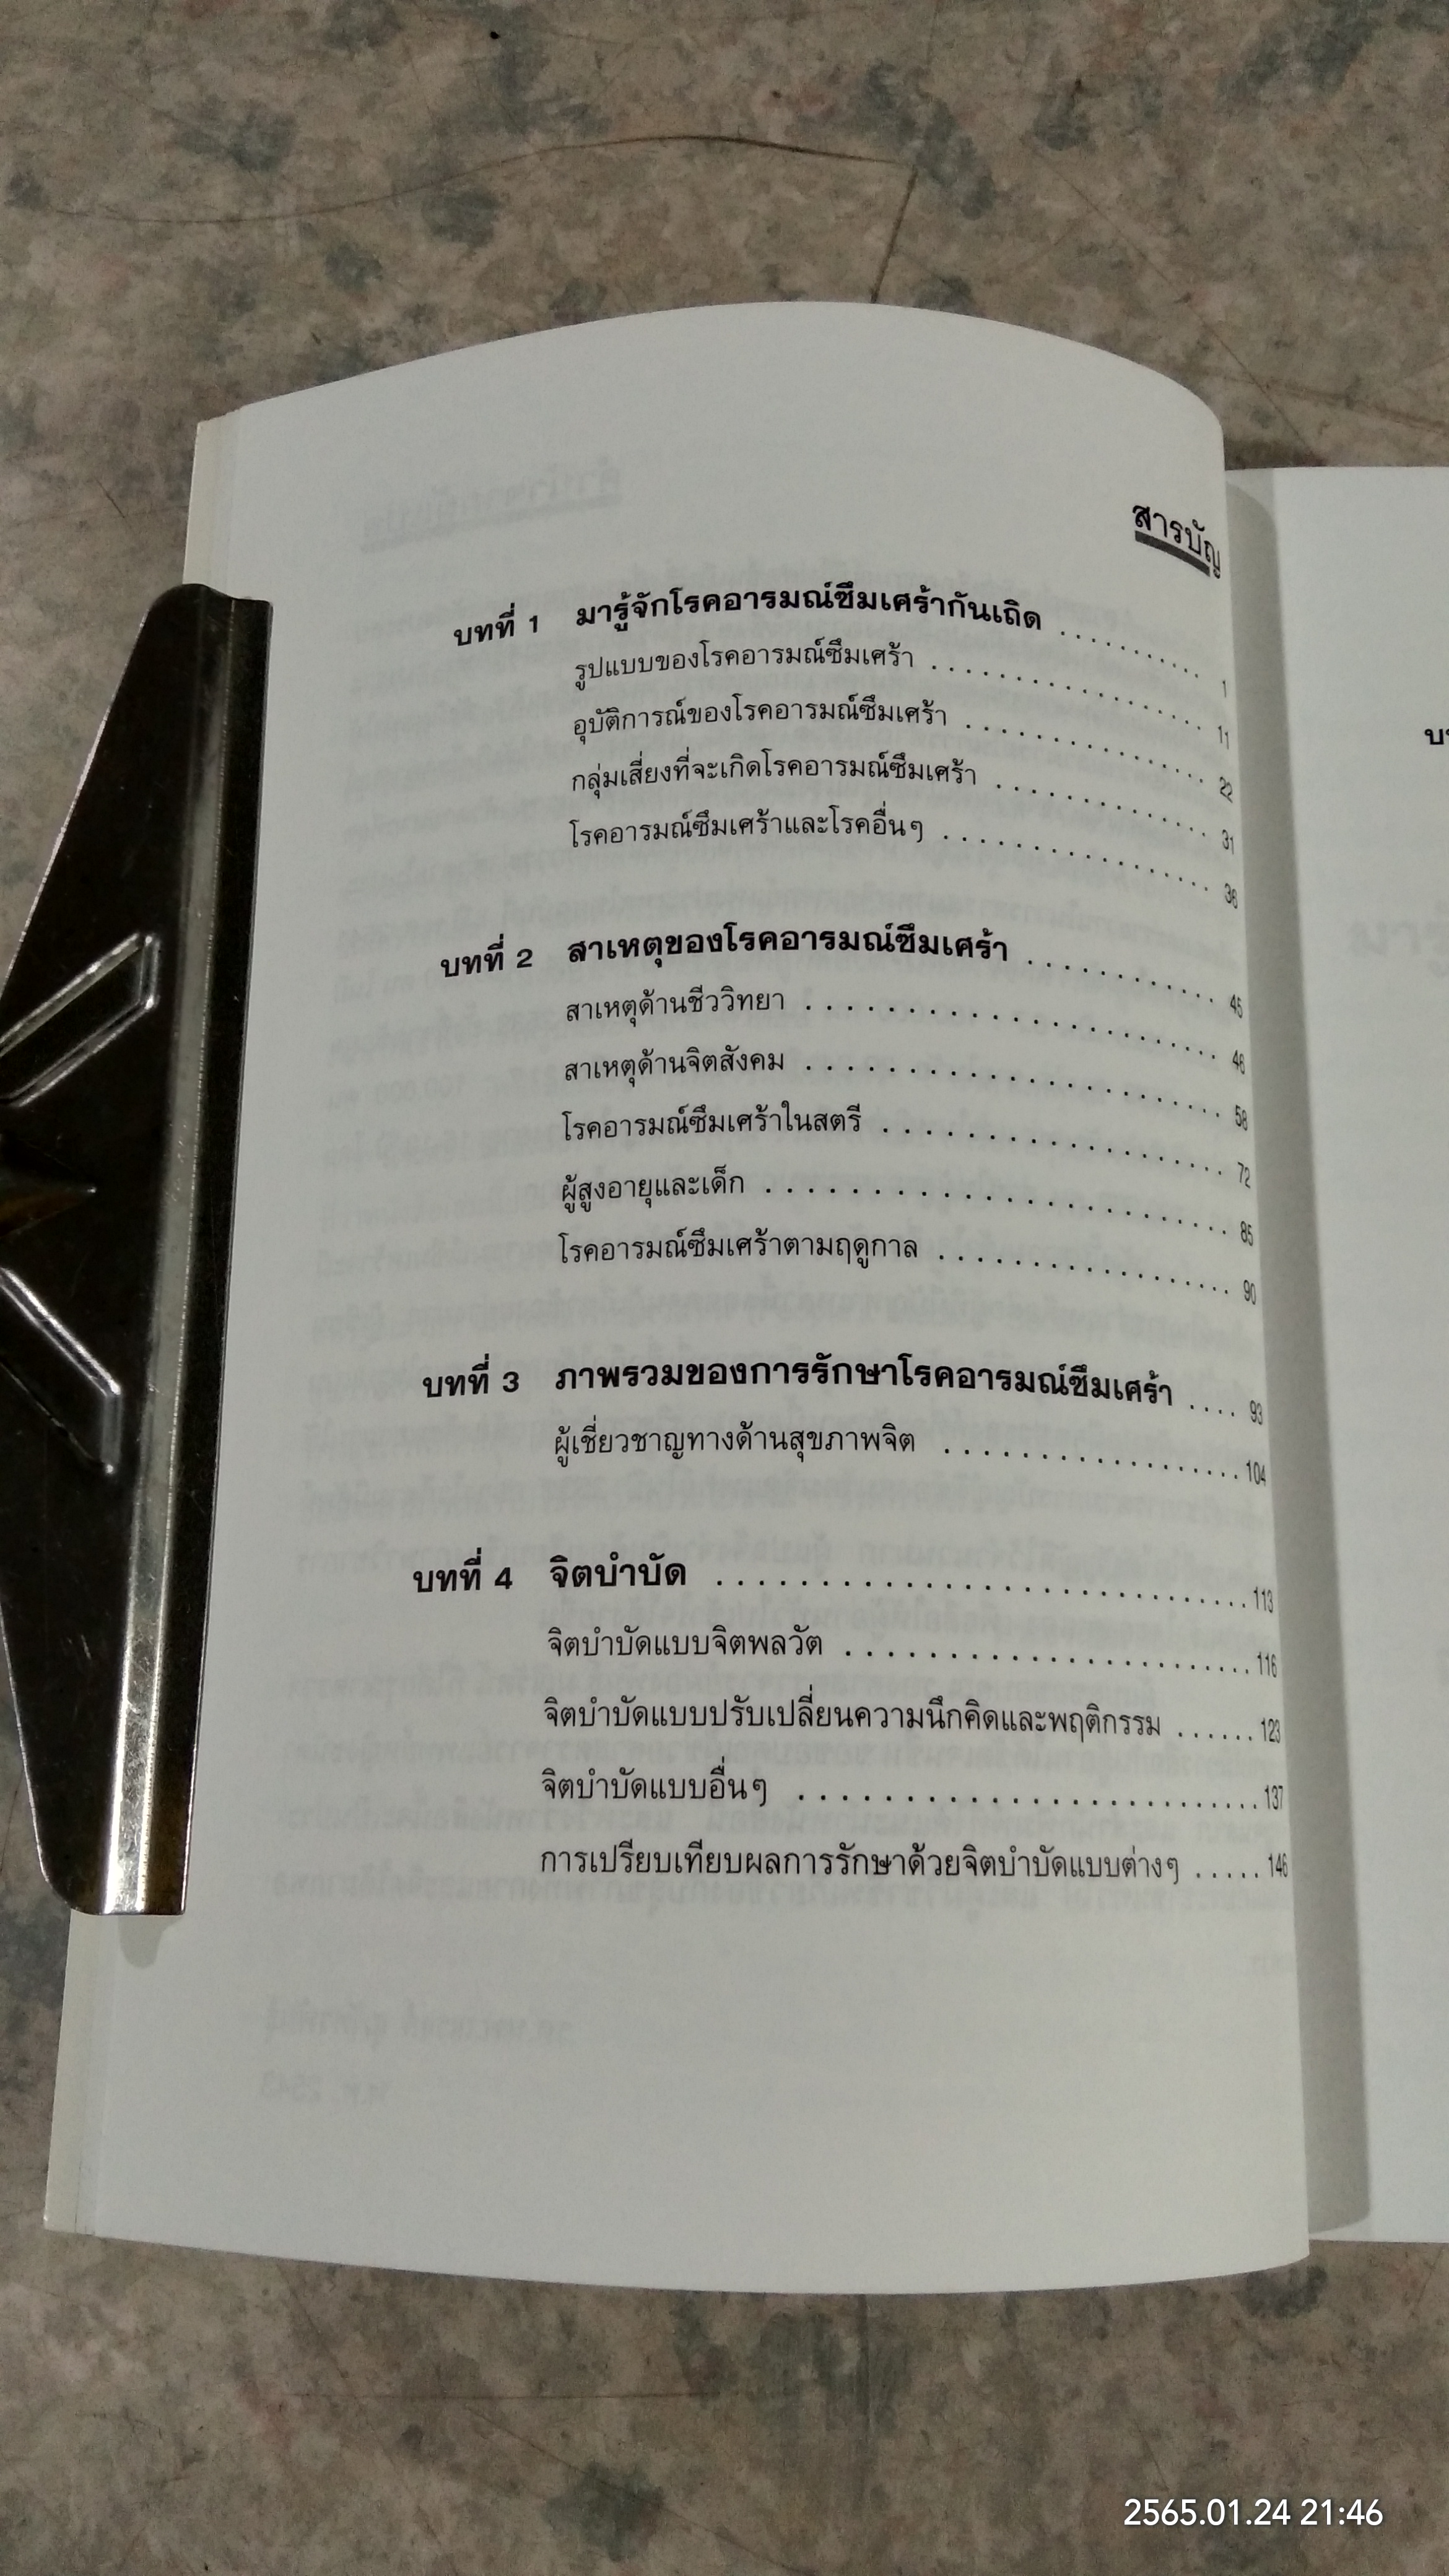 สารบัญ
บทที่ 1 มารู้จักโรคอารมณ์ซึมเศร้ากันเถิด . . . . . . . . . . . 1
รูปแบบของโรคอารมณ์ซึมเศร้า . . . . . . . . . . . . . . . . . 11
อุบัติการณ์ของโรคอารมณ์ซึมเศร้า . . . . . . . . . . . . . . . 22
กลุ่มเสี่ยงที่จะเกิดโรคอารมณ์ซึมเศร้า . . . . . . . . . . . . . 31
โรคอารมณ์ซึมเศร้าและโรคอื่นๆ . . . . . . . . . . . . . . . . 36
บทที่ 2 สาเหตุของโรคอารมณ์ซึมเศร้า . . . . . . . . . . . . 45
สาเหตุด้านชีววิทยา . . . . . . . . . . . . . . . . . . . . . . 46
สาเหตุด้านจิตสังคม . . . . . . . . . . . . . . . . . . . . . . 58
โรคอารมณ์ซึมเศร้าในสตรี . . . . . . . . . . . . . . . . . . . 72
ผู้สูงอายุและเด็ก . . . . . . . . . . . . . . . . . . . . . . . . 85
โรคอารมณ์ซึมเศร้าตามฤดูกาล . . . . . . . . . . . . . . . . 90
บทที่ 3 ภาพรวมของการรักษาโรคอารมณ์ซึมเศร้า . . . . 93
ผู้เชี่ยวชาญทางด้านสุขภาพจิต . . . . . . . . . . . . . . . . . 104
บทที่ 4 จิตบำบัด . . . . . . . . . . . . . . . . . . . . . . . . . . 113
จิตบำบัดแบบจิตพลวัต . . . . . . . . . . . . . . . . . . . . . . 116
จิตบำบัดแบบปรับเปลี่ยนความนึกคิดและพฤติกรรม . . . . . . 123
จิตบำบัดแบบอื่นๆ . . . . . . . . . . . . . . . . . . . . . . . . 137
การเปรียบเทียบผลการรักษาด้วยจิตบำบัดแบบต่างๆ . . . . . 146
2565.01.24 21:46